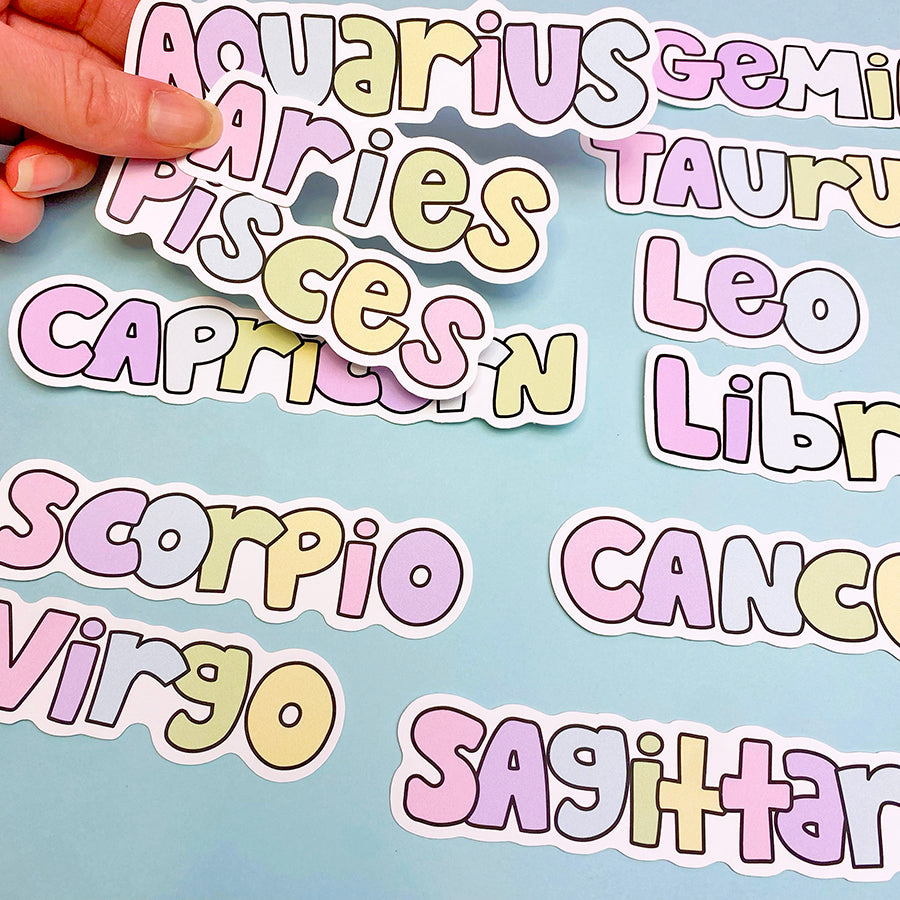 Aquarius
Gemi
Aries
Tauru
Pisces
Leo
Capricorn
Libr
Scorpio
Cance
Virgo
Sagittar